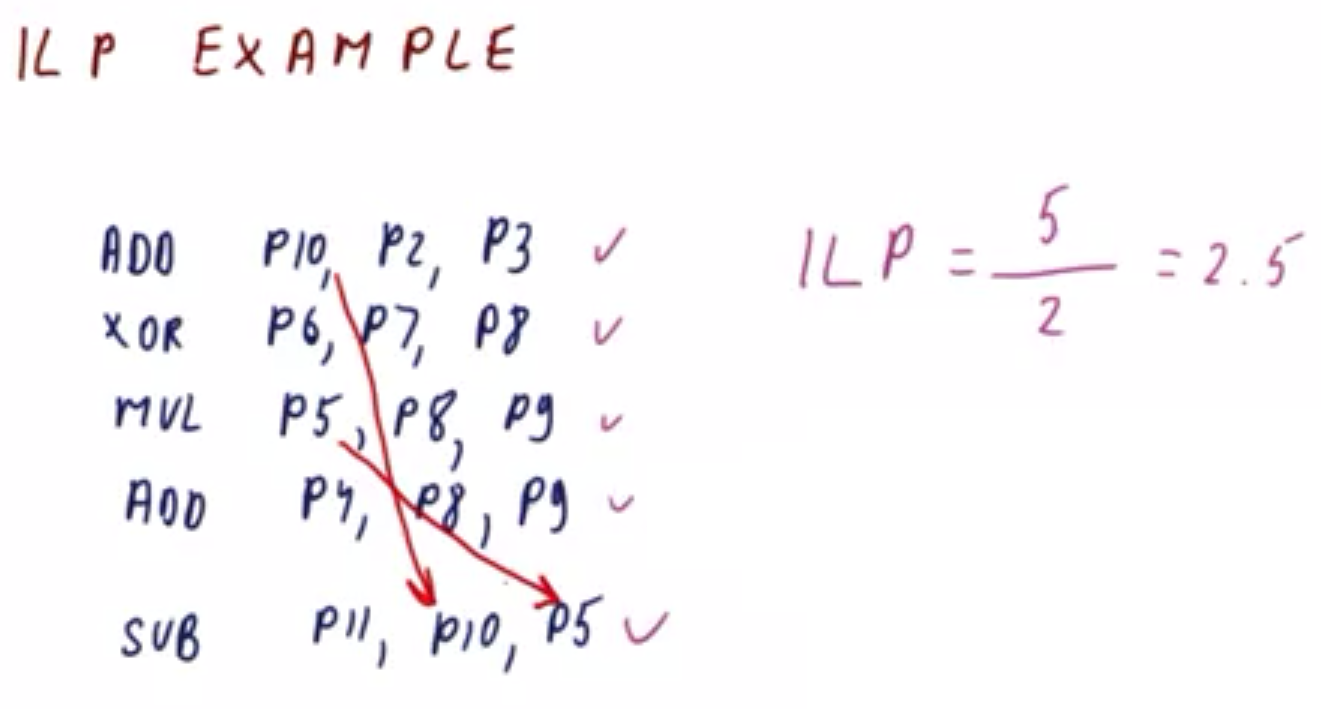 ILP EXAMPLE
ADD P10, P2, P3 ✓
XOR P6, P7, P8 ✓
MUL P5, P8, P9 ✓
ADD P4, P8, P9 ✓
SUB P11, P10, P5 ✓
ILP = 5/2 = 2.5